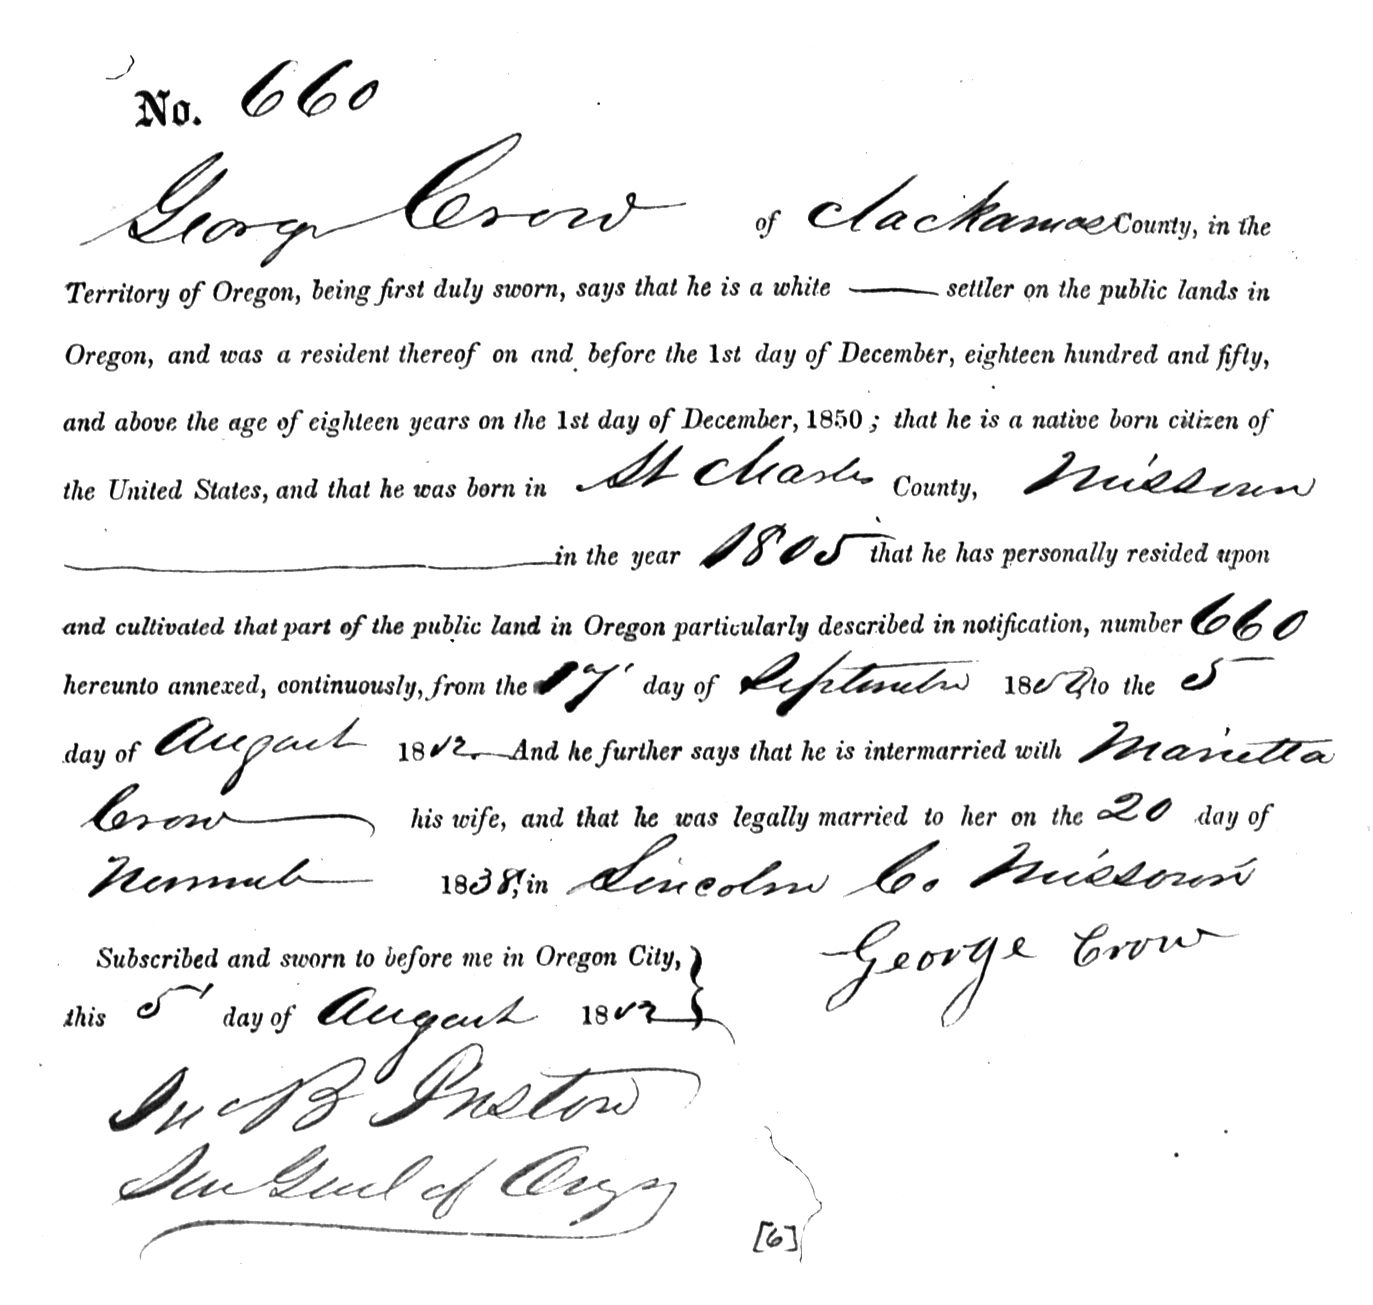 No. 660
George Crow of Clackamas County, in the
Territory of Oregon, being first duly sworn, says that he is a white settler on the public lands in
Oregon, and was a resident thereof on and before the 1st day of December, eighteen hundred and fifty,
and above the age of eighteen years on the 1st day of December, 1850; that he is a native born citizen of
the United States, and that he was born in St Charles County, Missouri
in the year 1805 that he has personally resided upon
and cultivated that part of the public land in Oregon particularly described in notification, number 660
hereunto annexed, continuously, from the 17 day of September 18 to the 5
day of August 1852 And he further says that he is intermarried with Marietta
Crow his wife, and that he was legally married to her on the 20 day of
1838, in Lincoln Co. Missouri
George Crow
Subscribed and sworn to before me in Oregon City,
this 5 day of August 1852
B Preston
Genl of
[6]